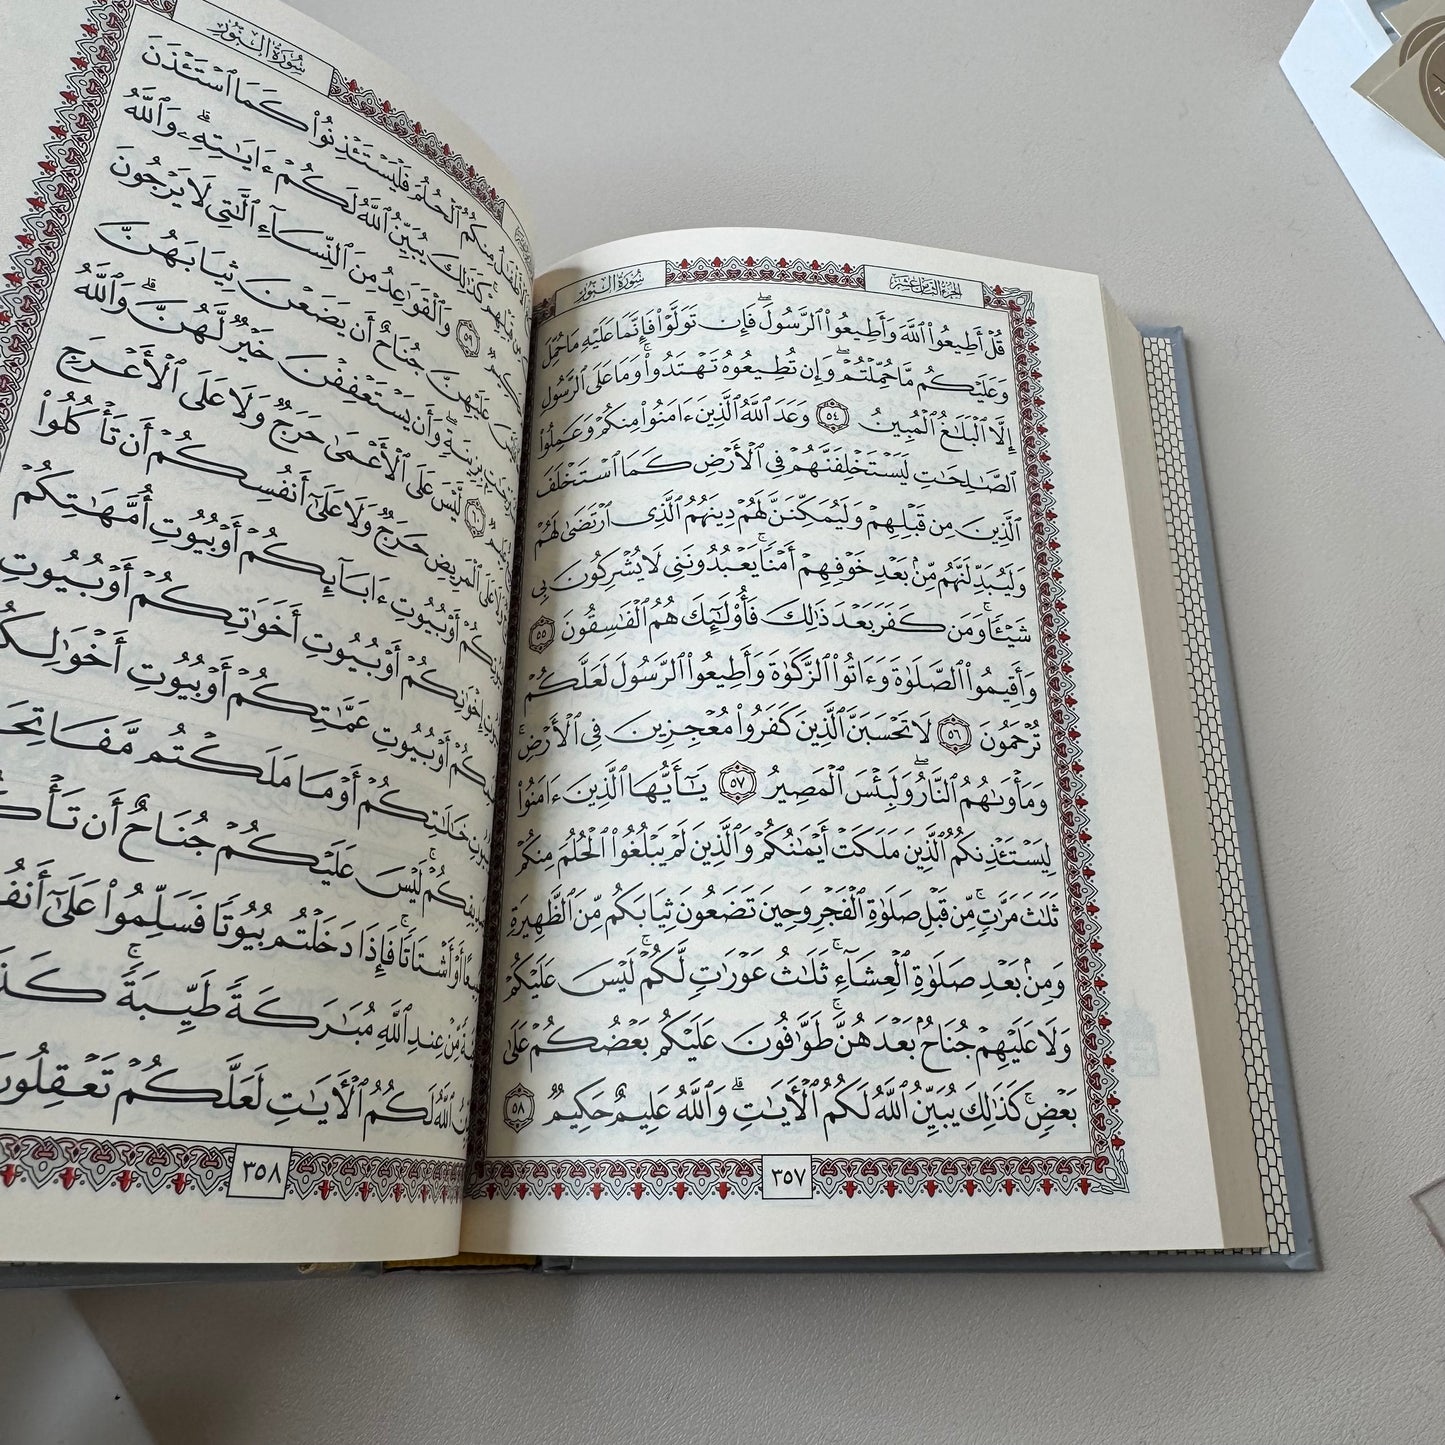 الجزء الثامن عشر
سورة النور
قُلْ أَطِيعُوا۟ ٱللَّهَ وَأَطِيعُوا۟ ٱلرَّسُولَ ۖ فَإِن تَوَلَّوْا۟ فَإِنَّمَا عَلَيْهِ مَا حُمِّلَ
وَعَلَيْكُم مَّا حُمِّلْتُمْ ۖ وَإِن تُطِيعُوهُ تَهْتَدُوا۟ ۚ وَمَا عَلَى ٱلرَّسُولِ
إِلَّا ٱلْبَلَـٰغُ ٱلْمُبِينُ ٥٤ وَعَدَ ٱللَّهُ ٱلَّذِينَ ءَامَنُوا۟ مِنكُمْ وَعَمِلُوا۟
ٱلصَّـٰلِحَـٰتِ لَيَسْتَخْلِفَنَّهُمْ فِى ٱلْأَرْضِ كَمَا ٱسْتَخْلَفَ
ٱلَّذِينَ مِن قَبْلِهِمْ وَلَيُمَكِّنَنَّ لَهُمْ دِينَهُمُ ٱلَّذِى ٱرْتَضَىٰ لَهُمْ
وَلَيُبَدِّلَنَّهُم مِّنۢ بَعْدِ خَوْفِهِمْ أَمْنًا ۚ يَعْبُدُونَنِى لَا يُشْرِكُونَ بِى
شَيْـًٔا ۚ وَمَن كَفَرَ بَعْدَ ذَٰلِكَ فَأُو۟لَـٰٓئِكَ هُمُ ٱلْفَـٰسِقُونَ ٥٥
وَأَقِيمُوا۟ ٱلصَّلَوٰةَ وَءَاتُوا۟ ٱلزَّكَوٰةَ وَأَطِيعُوا۟ ٱلرَّسُولَ لَعَلَّكُمْ
تُرْحَمُونَ ٥٦ لَا تَحْسَبَنَّ ٱلَّذِينَ كَفَرُوا۟ مُعْجِزِينَ فِى ٱلْأَرْضِ ۚ
وَمَأْوَىٰهُمُ ٱلنَّارُ ۖ وَلَبِئْسَ ٱلْمَصِيرُ ٥٧ يَـٰٓأَيُّهَا ٱلَّذِينَ ءَامَنُوا۟
لِيَسْتَـْٔذِنكُمُ ٱلَّذِينَ مَلَكَتْ أَيْمَـٰنُكُمْ وَٱلَّذِينَ لَمْ يَبْلُغُوا۟ ٱلْحُلُمَ مِنكُمْ
ثَلَـٰثَ مَرَّٰتٍ ۚ مِّن قَبْلِ صَلَوٰةِ ٱلْفَجْرِ وَحِينَ تَضَعُونَ ثِيَابَكُم مِّنَ ٱلظَّهِيرَةِ
وَمِنۢ بَعْدِ صَلَوٰةِ ٱلْعِشَآءِ ۚ ثَلَـٰثُ عَوْرَٰتٍ لَّكُمْ ۚ لَيْسَ عَلَيْكُمْ
وَلَا عَلَيْهِمْ جُنَاحٌۢ بَعْدَهُنَّ ۚ طَوَّٰفُونَ عَلَيْكُم بَعْضُكُمْ عَلَىٰ
بَعْضٍ ۚ كَذَٰلِكَ يُبَيِّنُ ٱللَّهُ لَكُمُ ٱلْـَٔايَـٰتِ ۗ وَٱللَّهُ عَلِيمٌ حَكِيمٌ ٥٨
٣٥٧
سورة النور
مِنكُمُ ٱلْحُلُمَ فَلْيَسْتَـْٔذِنُوا۟ كَمَا ٱسْتَـْٔذَنَ
كَذَٰلِكَ يُبَيِّنُ ٱللَّهُ لَكُمْ ءَايَـٰتِهِۦ ۗ وَٱللَّهُ
٥٩ وَٱلْقَوَٰعِدُ مِنَ ٱلنِّسَآءِ ٱلَّـٰتِى لَا يَرْجُونَ
عَلَيْهِنَّ جُنَاحٌ أَن يَضَعْنَ ثِيَابَهُنَّ
بِزِينَةٍ ۖ وَأَن يَسْتَعْفِفْنَ خَيْرٌ لَّهُنَّ ۗ وَٱللَّهُ
٦٠ لَّيْسَ عَلَى ٱلْأَعْمَىٰ حَرَجٌ وَلَا عَلَى ٱلْأَعْرَجِ
وَلَا عَلَى ٱلْمَرِيضِ حَرَجٌ وَلَا عَلَىٰٓ أَنفُسِكُمْ أَن تَأْكُلُوا۟
أَوْ بُيُوتِ ءَابَآئِكُمْ أَوْ بُيُوتِ أُمَّهَـٰتِكُمْ
إِخْوَٰنِكُمْ أَوْ بُيُوتِ أَخَوَٰتِكُمْ أَوْ بُيُوتِ
أَوْ بُيُوتِ عَمَّـٰتِكُمْ أَوْ بُيُوتِ أَخْوَٰلِكُمْ
خَـٰلَـٰتِكُمْ أَوْ مَا مَلَكْتُم مَّفَاتِحَهُ
لَيْسَ عَلَيْكُمْ جُنَاحٌ أَن
أَوْ أَشْتَاتًا ۚ فَإِذَا دَخَلْتُم بُيُوتًا فَسَلِّمُوا۟ عَلَىٰٓ
مِّنْ عِندِ ٱللَّهِ مُبَـٰرَكَةً طَيِّبَةً ۚ
ٱللَّهُ لَكُمُ ٱلْـَٔايَـٰتِ لَعَلَّكُمْ تَعْقِلُونَ
٣٥٨